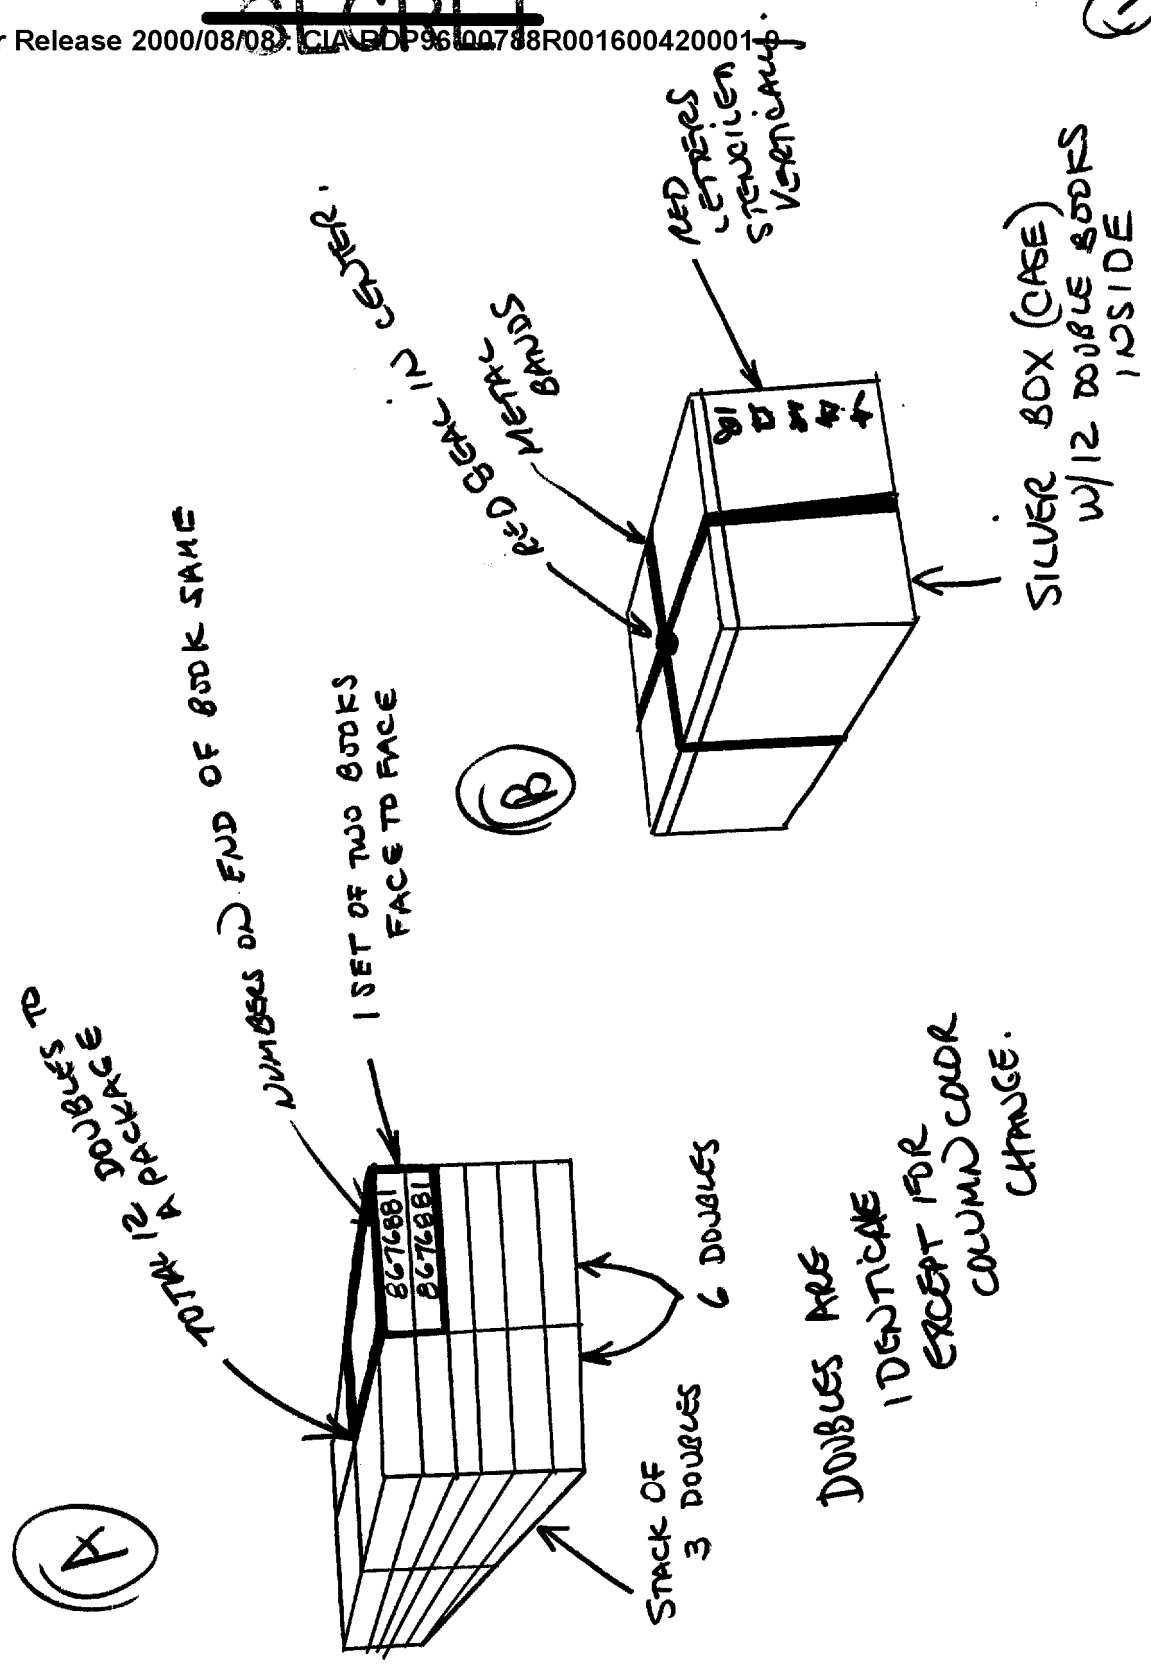 SECRET
r Release 2000/08/08 : CIA-RDP96-00788R001600420001-9
A
TOTAL 12 DOUBLES TO
A PACKAGE
NUMBERS ON END OF BOOK SAME
1 SET OF TWO BOOKS
FACE TO FACE
8676881
8676881
6 DOUBLES
STACK OF
3 DOUBLES
DOUBLES ARE
IDENTICAL
EXCEPT FOR
COLUMN COLOR
CHANGE.
B
RED SEAL IN CENTER.
METAL
BANDS
RED
LETTERS
STENCILED
VERTICALLY.
SILVER BOX (CASE)
W/12 DOUBLE BOOKS
INSIDE